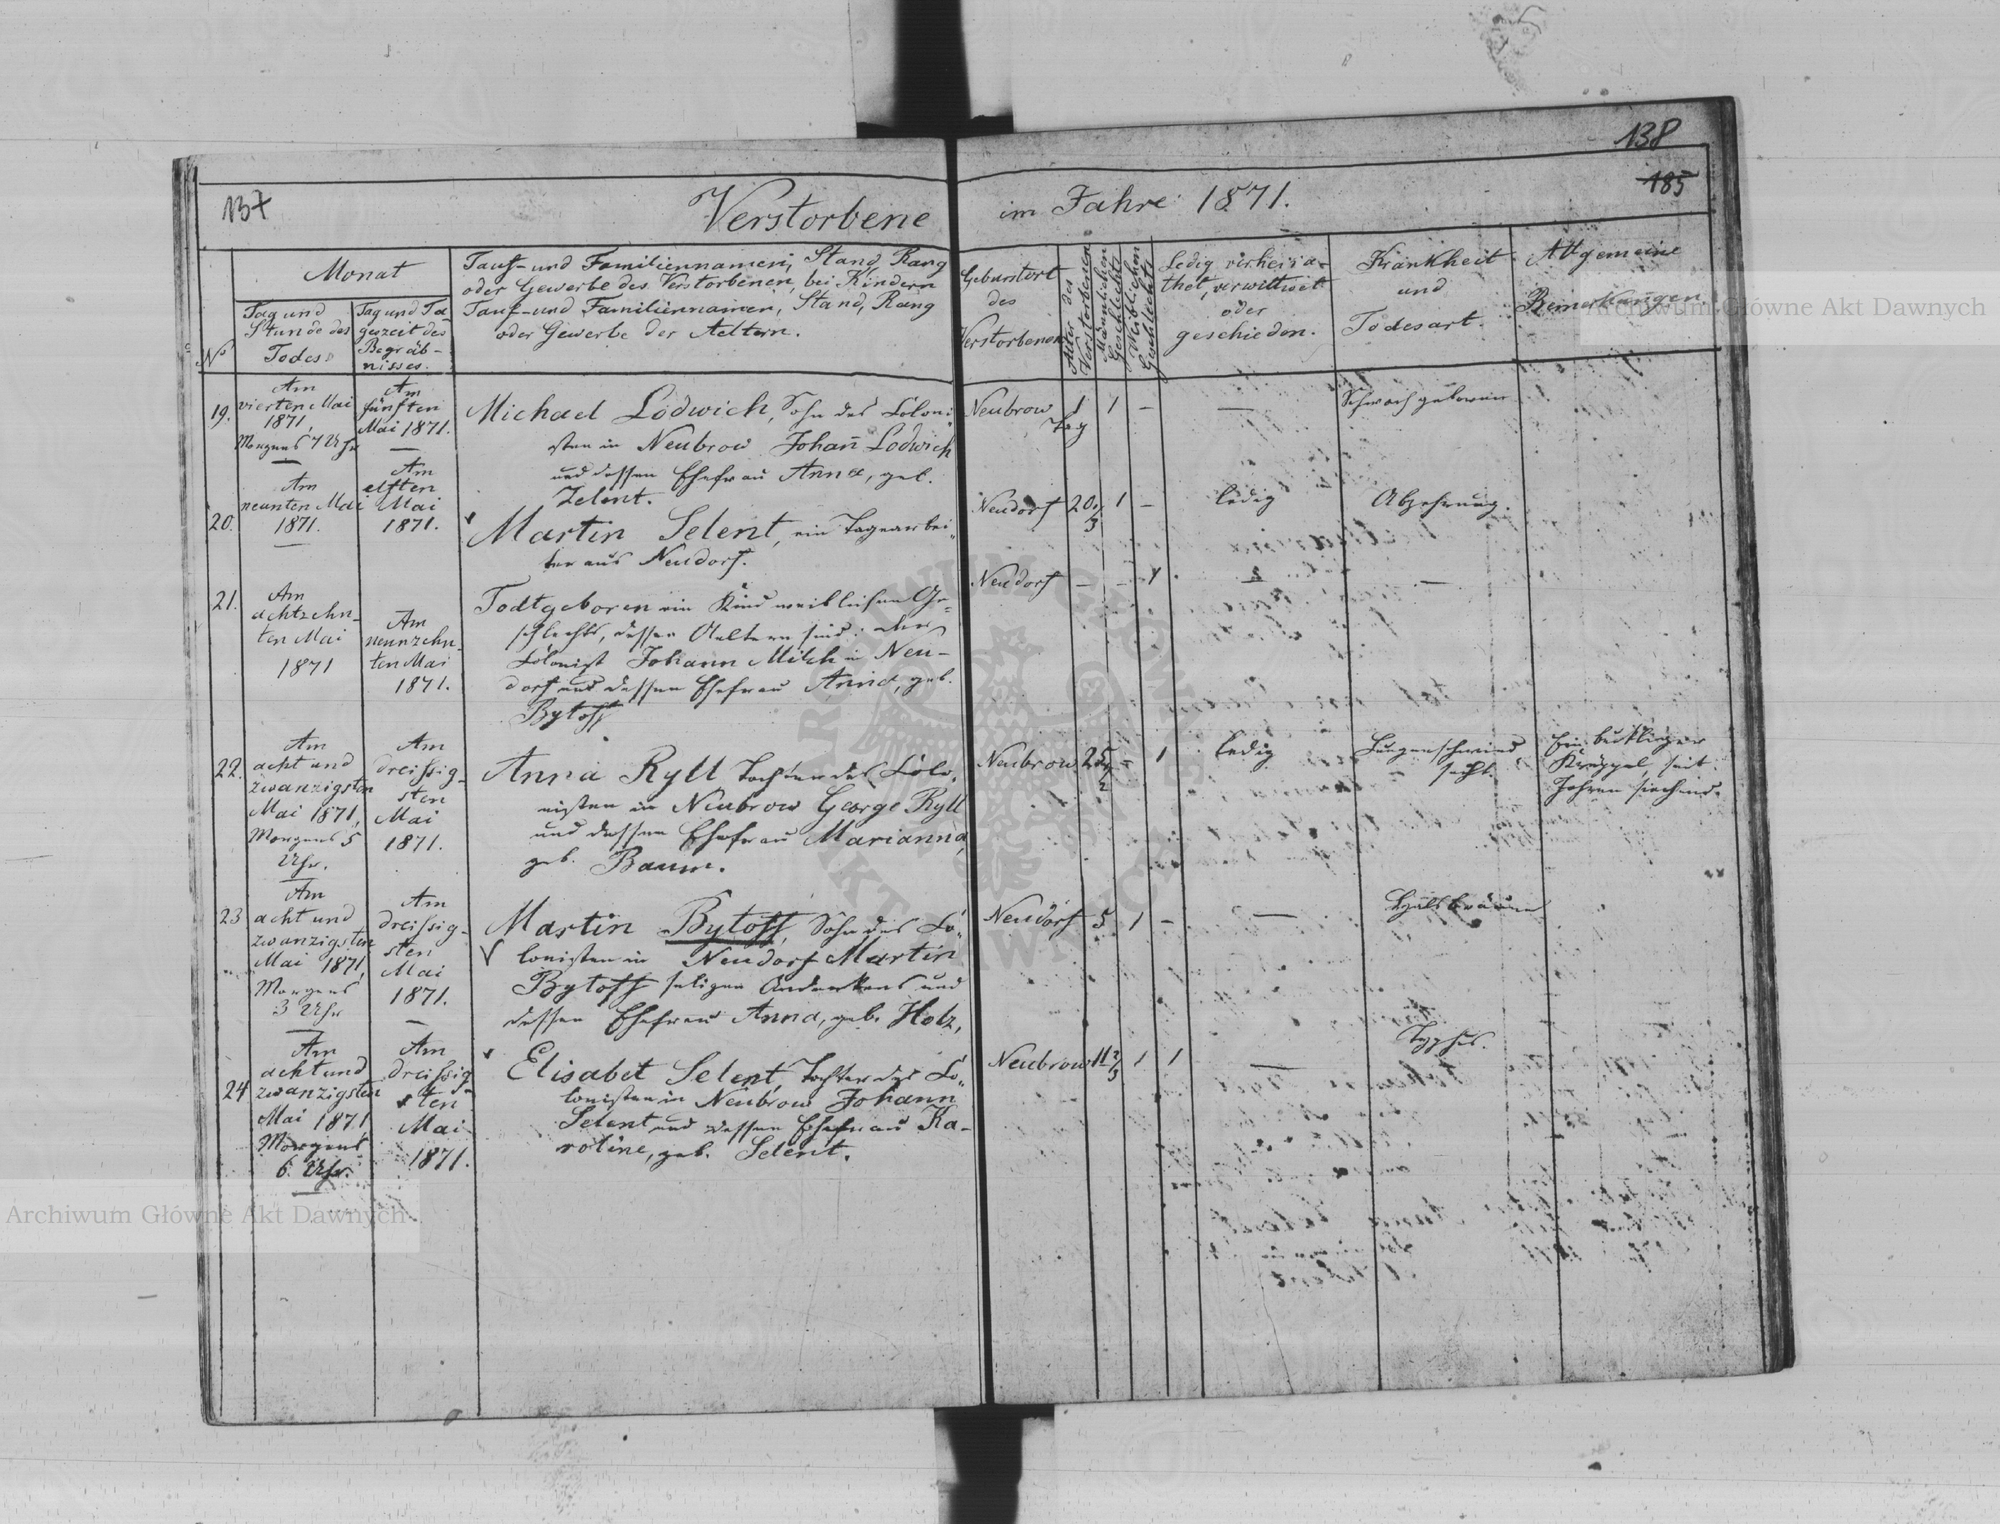 138
137
185
Verstorbene im Jahre 1871.
Monat
Tag und
Stunde des
Todes
Tag und Ta
geszeit des
Begräb-
nisses.
No
Tauf- und Familiennamen, Stand, Rang
oder Gewerbe des Verstorbenen, bei Kindern
Tauf- und Familiennamen, Stand, Rang
oder Gewerbe der Aeltern.
Geburtsort
des
Verstorbenen
Alter des
Verstorbenen
Männlichen
Geschlechts
Weiblichen
Geschlechts
Ledig verheira-
thet, verwittwet
oder
geschieden.
Krankheit
und
Todesart.
Allgemeine
Bemerkungen.
Archiwum Główne Akt Dawnych
19.
Am
vierten Mai
1871,
Morgens 7 Uhr
Am
fünften
Mai 1871.
Michael Lodwich, Sohn des Coloni-
sten in Neubrow Johann Lodwich
und dessen Ehefrau Anna, geb.
Zelent.
Neubrow
1
Tag
1
—
—
Schwach geboren
20.
Am
neunten Mai
1871.
Am
elften
Mai
1871.
Martin Selent, ein Tagearbei-
ter aus Neudorf.
Neudorf
1
—
ledig
Abzehrung.
21.
Am
achtzehn-
ten Mai
1871
Am
neunzehn-
ten Mai
1871.
Todtgeboren ein Kind weiblichen Ge-
schlechts, dessen Aeltern sind: der
Colonist Johann Milch in Neu-
dorf und dessen Ehefrau Anna, geb.
Bytoff
Neudorf
—
—
1
—
22.
Am
acht und
zwanzigsten
Mai 1871,
Morgens 5
Uhr.
Am
dreissig-
sten
Mai
1871.
Anna Ryll Tochter des Colo-
nisten in Neubrow George Ryll
und dessen Ehefrau Marianna,
geb. Baum.
Neubrow
1
ledig
Lungenschwind-
sucht.
Ein bukliger
Krüppel, seit
Jahren siechend.
23
Am
acht und
zwanzigsten
Mai 1871,
Morgens
3 Uhr
Am
dreissig-
sten
Mai
1871.
Martin Bytoff, Sohn des Co-
lonisten in Neudorf Martin
Bytoff seligen Andenkens und
dessen Ehefrau Anna, geb. Holz,
Neudorf
5
1
—
—
Halsbräune
24
Am
acht und
zwanzigsten
Mai 1871
Morgens
6. Uhr.
Am
dreissig
sten
Mai
1871.
Elisabet Selent, Tochter des Co-
lonisten in Neubrow Johann
Selent und dessen Ehefrau Ka-
roline, geb. Selent.
Neubrow
1
1
—
Typhus.
Archiwum Główne Akt Dawnych
ARCHIWUM GŁÓWNE AKT DAWNYCH